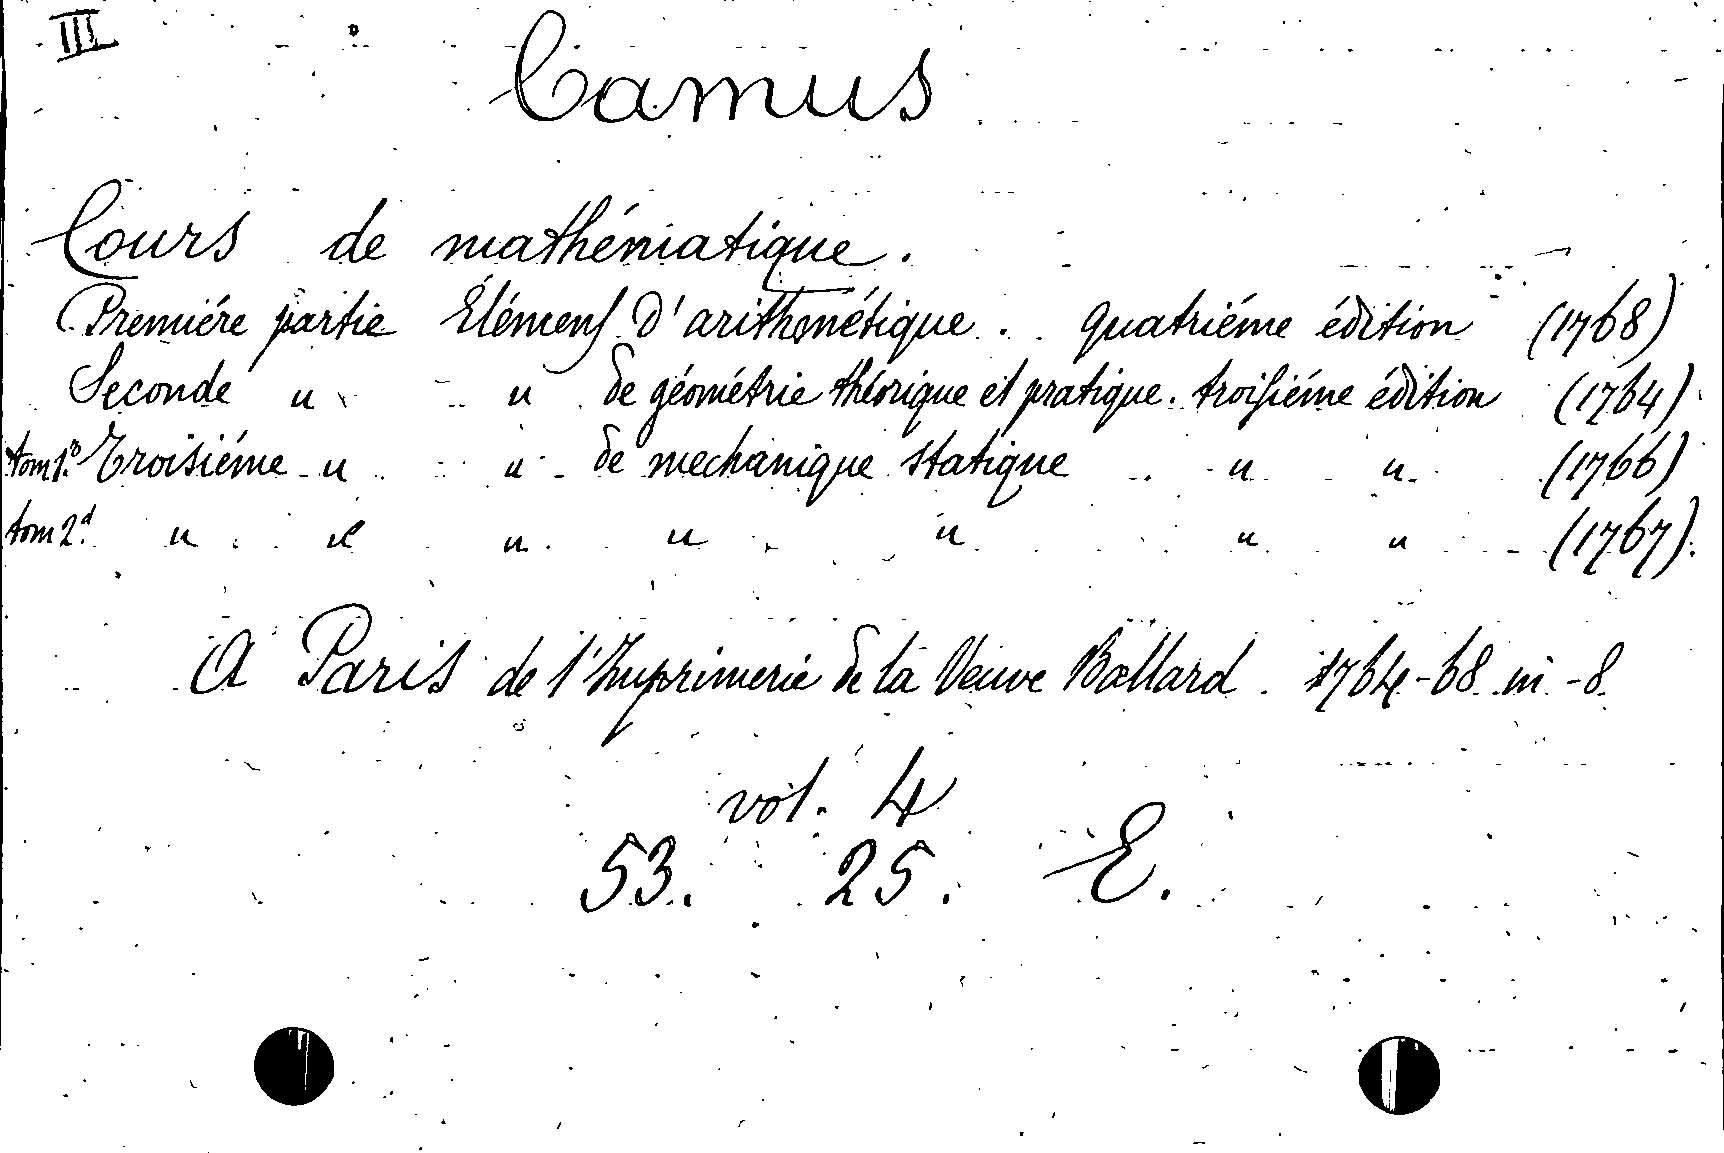 III
Camus
Cours de mathématique.
Premiére partie Élémens d'arithmétique. quatriéme édition (1768)
Seconde " " de géométrie théorique et pratique. troisiéme édition (1764)
tom 1.º Troisiéme " " de mechanique statique " " (1766)
tom 2.d " " " " " " " (1767).
A Paris de l'Imprimerie de la Veuve Ballard. 1764-68 in -8.
vol. 4
53. 25. E.